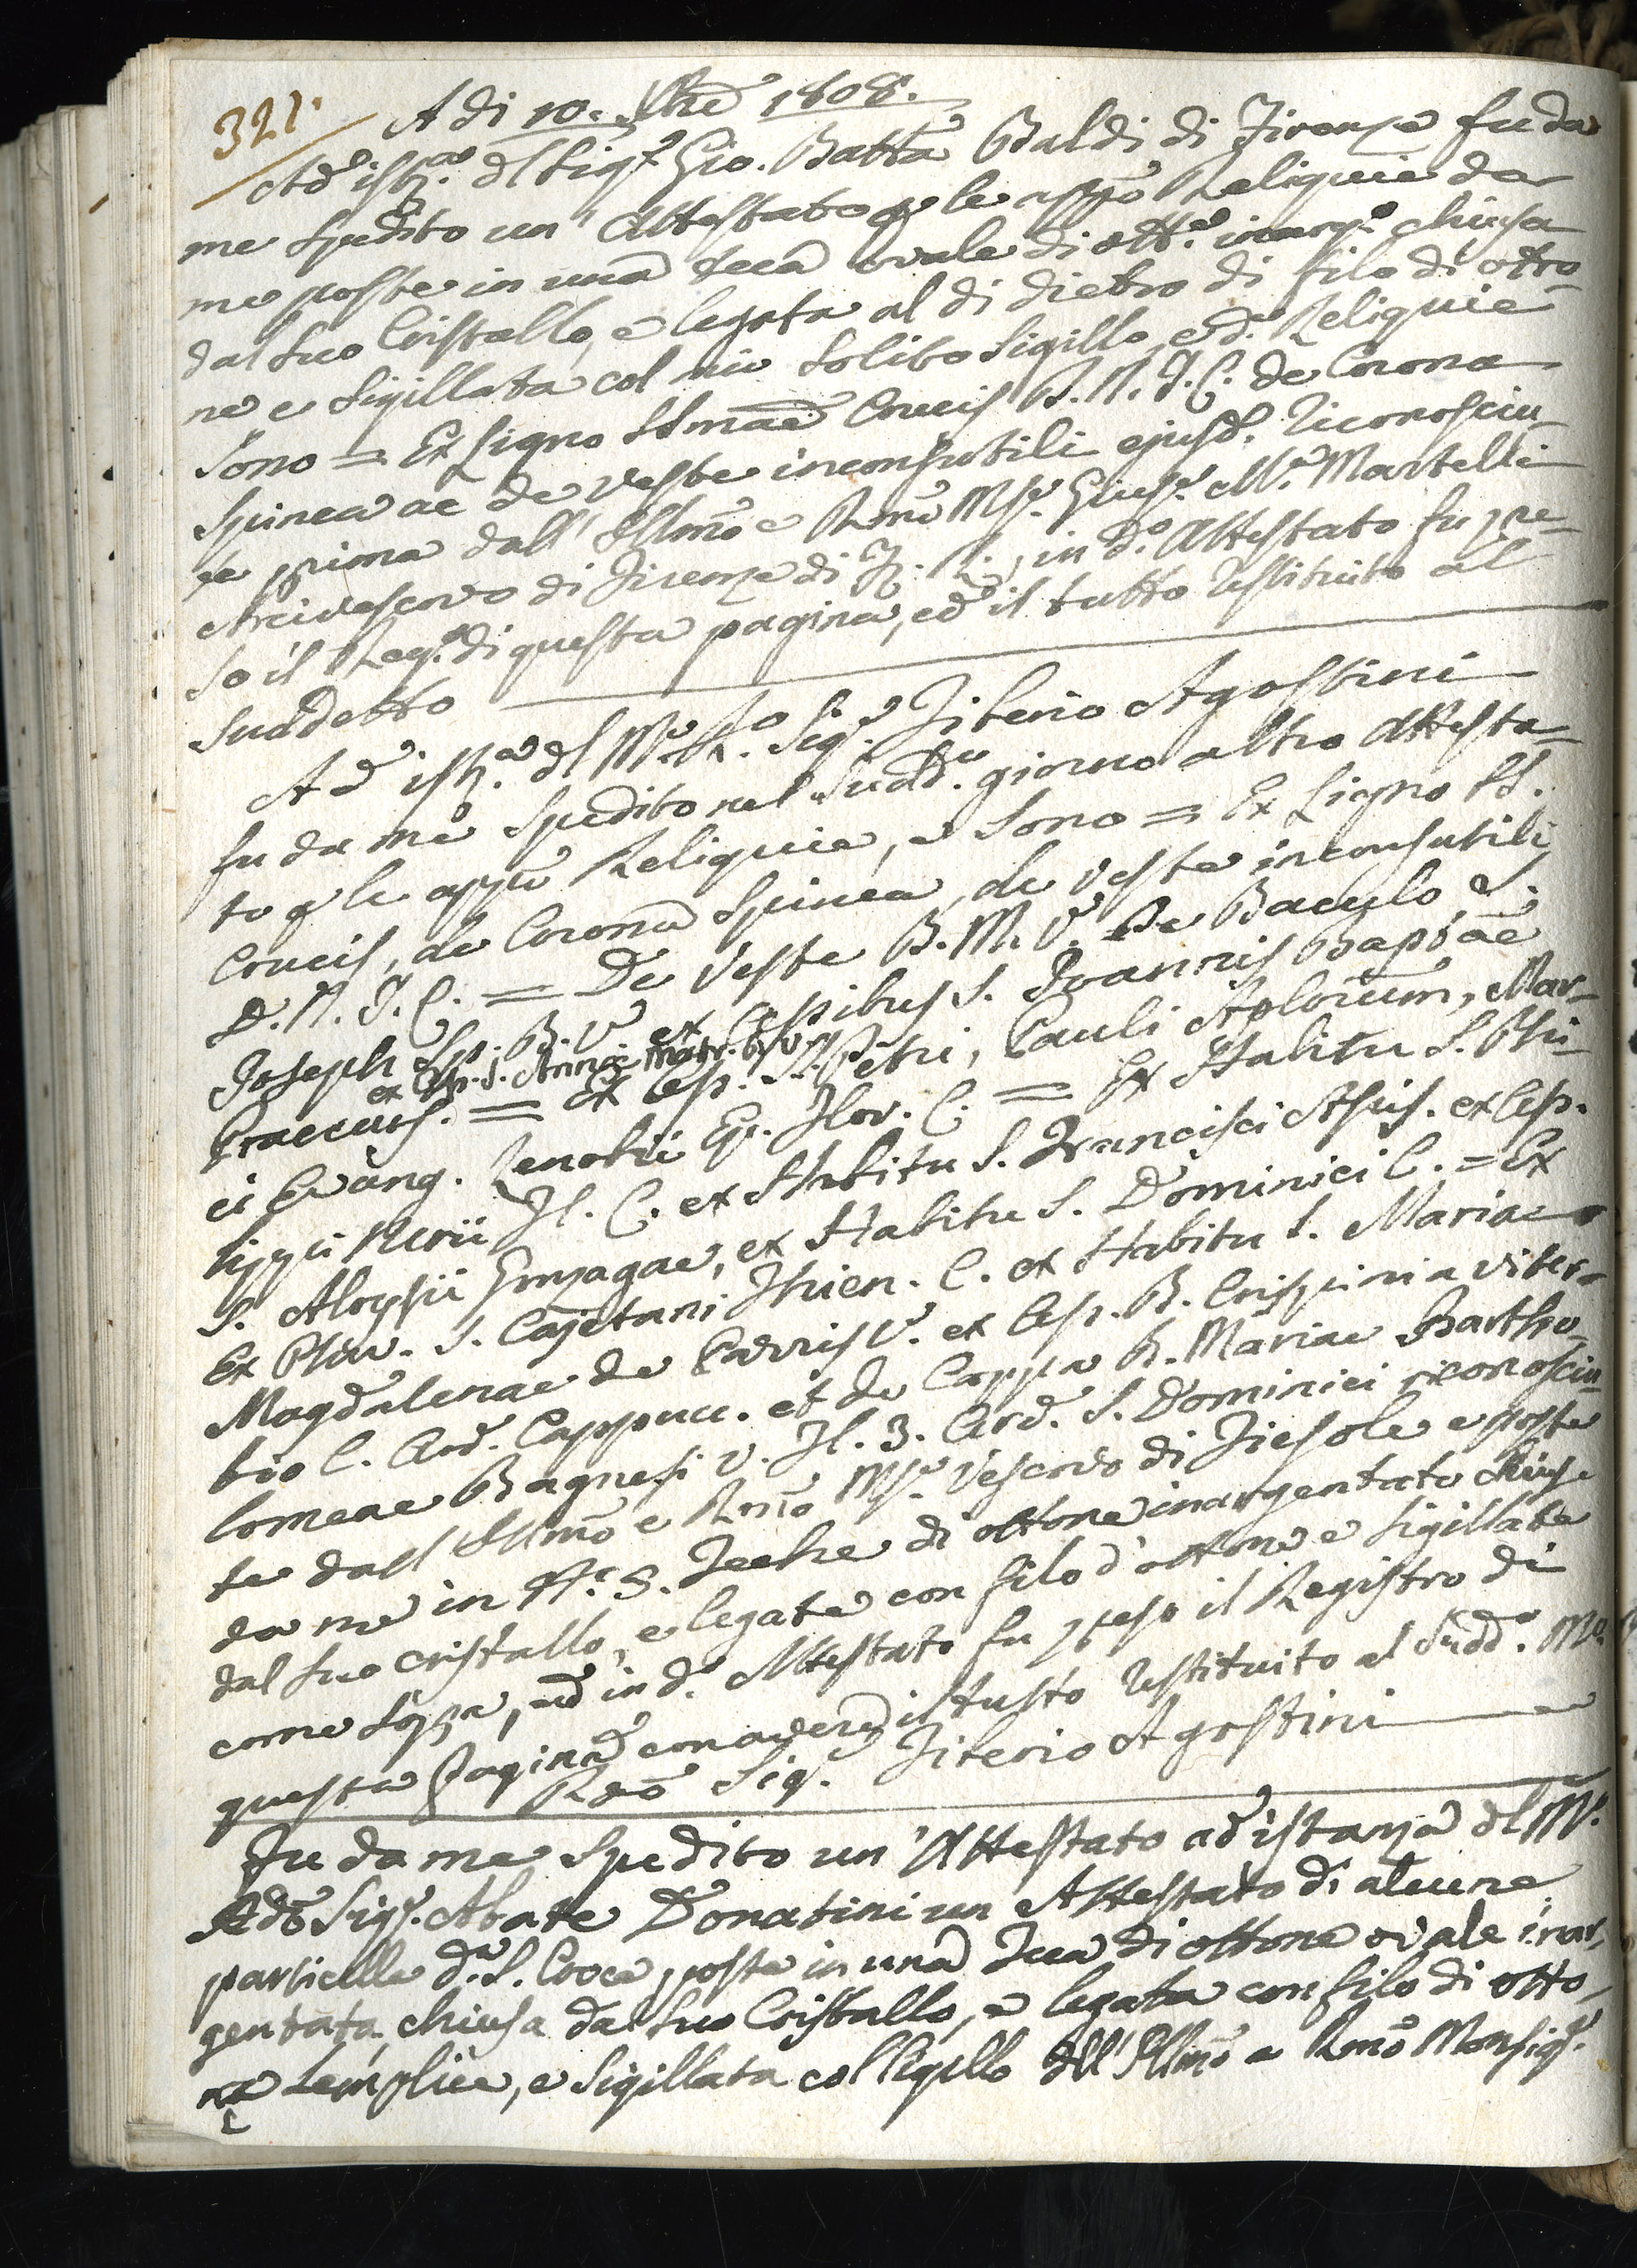 321.
A di 10. 8bre 1808.
Ad istza. del Sigr. Gio. Batta Baldi di Firenze fu da
me spedito un' Attestato p le appo Reliquie da
me poste in una teca ovale di otte. inargo. chiusa
dal suo Cristallo, e legata al di dietro di filo di otto-
ne e sigillata col mio solito sigillo, e de. Reliquie
sono = Ex Ligno SSmae Crucis D. N. J. C. de Corona
Spinea ac de Veste inconsutili ejusd. riconosciu-
te prima dall' Illmo e Rmo Msr. Giuse. Ma. Martelli
Arcivescovo di Firenze di, in do. Attestato fu pre-
so il Rego. di questa pagina, ed il tutto restituito al
suddetto
Ad istza. del Mo. Ro. Sigr. Tiberio Agostini
fu da me spedito nel sudd. giorno altro Attesta-
to p le appe Reliquie, e sono = Ex Ligno SS.
Crucis, de Corona Spinea, de Veste inconsutili
D. N. J. C. = De Veste B. M. V. De Baculo S.
Joseph Sp. B. V. ex Cispibus S. Joannis Baptae
ex Osp. S. Annae Matr. B. V.
Praecurs. = Ex Osp. S. Petri, Pauli Aplorum, Mar-
ci Evang. Zenobii Ep. Flor. C. = Ex Habitu S. Phi-
lippi Nerii Fl. C. ex Habitu S. Francisci Assis. ex Osp.
S. Aloysii Gonzagae, ex Habitu S. Dominici C. = Ex
Ex Plan. S. Cajetani Thien. C. ex Habitu S. Mariae
Magdalenae de Pazzis V. ex Osp. B. Crispini a Viter-
bio C. Ord. Cappucc. et de Cappa B. Mariae Bartho-
lomeae Bagnesi V. Fl. 3. Ord. S. Dominici riconosciu-
te dall' Illmo e Rmo Msr. Vescovo di Fiesole e poste
da me in No. 3. Teche di ottone inargentato chiuse
dal suo cristallo, e legate con filo d'ottone e sigillate
come sopra, ed in do. Attestato fu preso il Registro di
questa Pagina con avere il tutto restituito al sudd. Mo.
Rdo Sigr. Tiberio Agostini
Fu da me spedito un' Attestato ad istanza del Mo.
Rdo Sigr. Abate Donatini un Attestato di alcune
particelle da. S. Croce, poste in una Teca di ottone ovale inar-
gentata, chiusa dal suo Cristallo, e legata con filo di otto-
ne semplice, e sigillata col sigillo dell' Illmo e Rmo Monsigr.